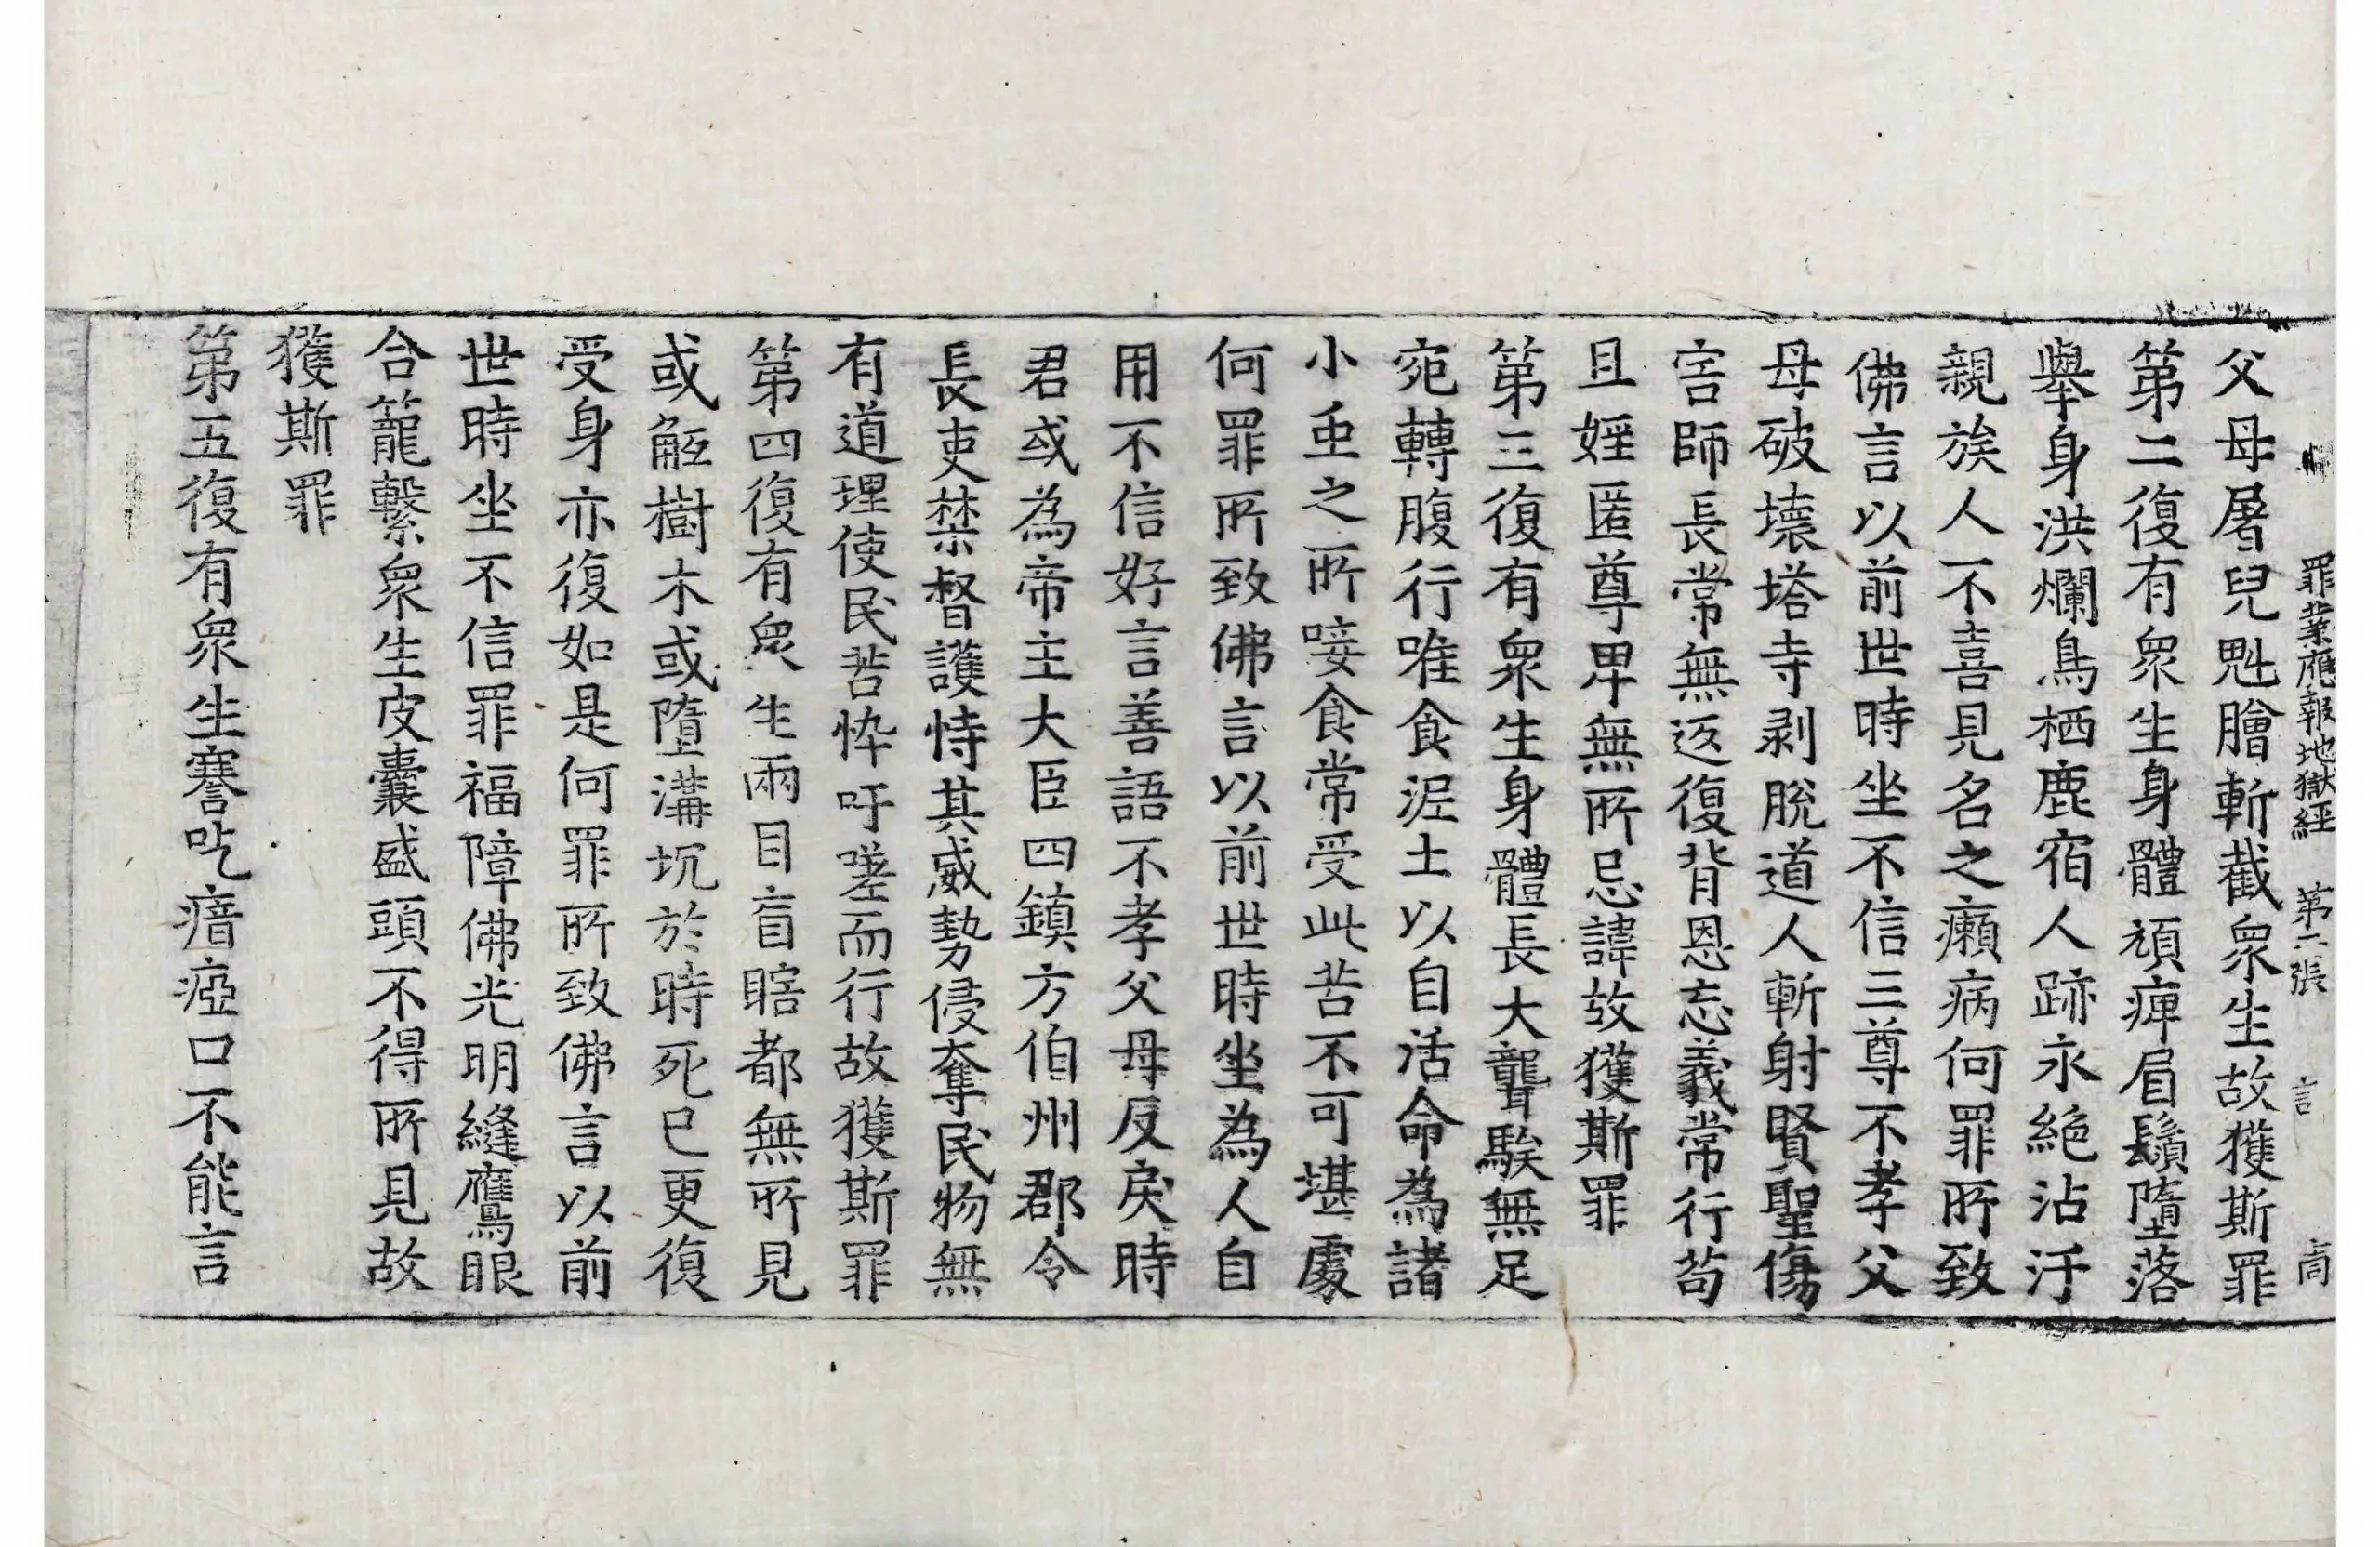 罪業應報地獄經 第二張 言 高
父母屠兒魁膾斬截衆生故獲斯罪
第二復有衆生身體頑痺眉鬚墮落
舉身洪爛鳥栖鹿宿人跡永絕沾汙
親族人不喜見名之癩病何罪所致
佛言以前世時坐不信三尊不孝父
母破壞塔寺剥脫道人斬射賢聖傷
害師長常無返復背恩忘義常行苟
且婬匿尊卑無所忌諱故獲斯罪
第三復有衆生身體長大聾騃無足
宛轉腹行唯食泥土以自活命為諸
小虫之所唼食常受此苦不可堪處
何罪所致佛言以前世時坐為人自
用不信好言善語不孝父母反戾時
君或為帝主大臣四鎮方伯州郡令
長吏禁督護恃其威勢侵奪民物無
有道理使民苦忰吁嗟而行故獲斯罪
第四復有衆生兩目盲瞎都無所見
或觝樹木或墮溝坑於時死已更復
受身亦復如是何罪所致佛言以前
世時坐不信罪福障佛光明縫鷹眼
合籠繫衆生皮囊盛頭不得所見故
獲斯罪
第五復有衆生謇吃瘖瘂口不能言